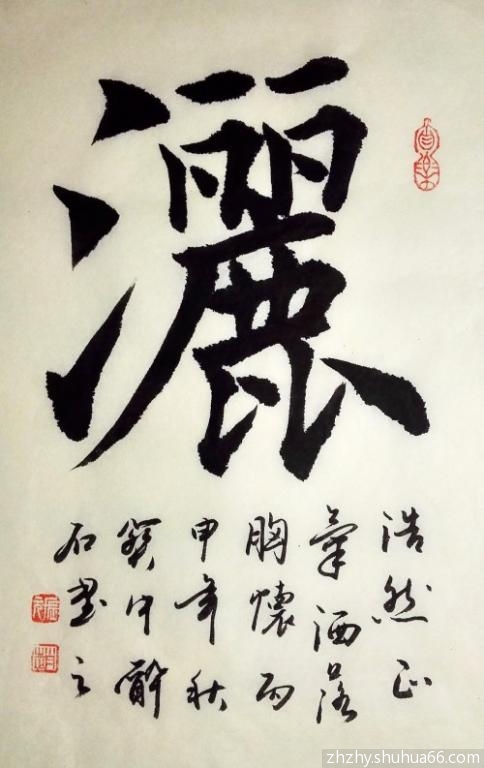 灑
浩然正
氣洒落
胸懷丙
申年秋
中
石書之
zhzhy.shuhua66.com